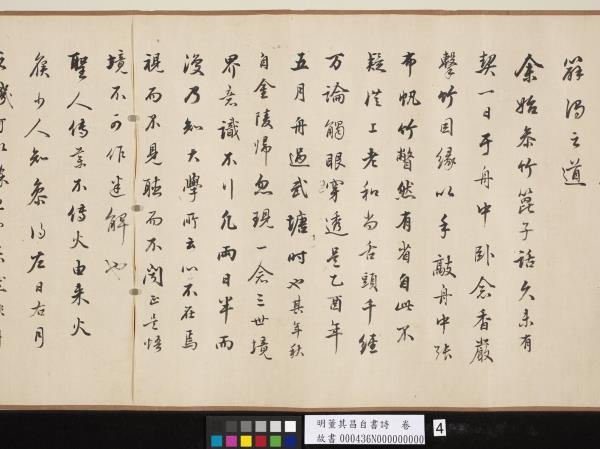 之道
余始參竹篦子話久未有
契一日于舟中卧念香嚴
擊竹因緣以手敲舟中張
布帆竹瞥然有省自此不
疑從上老和尚舌頭千經
万論觸眼穿透是乙酉年
五月舟過武塘時也其年秋
自金陵歸忽現一念三世境
界意識不行凡兩日半而
復乃知大學所云心不在焉
視而不見聽而不聞正是悟
境不可作迷解也
聖人傳藥不傳火由来火
候少人知參得左日右月
明董其昌自書詩　卷
故書 000436N000000000
4